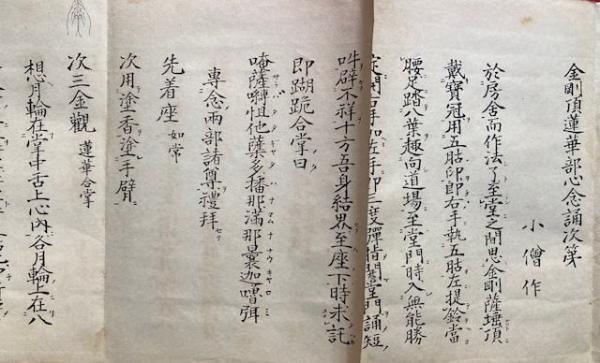 金剛頂蓮華部心念誦次第
小僧作
於居舍而作法了至堂之間思金剛薩埵頂
戴寶冠用五股印即右手執五股左提鈴當
腰足踏八葉趣向道場至堂門時入無能勝
三度彈指開堂門誦短
吽辟不祥十方吾身結界至座下時求記
即跪合掌曰
唵薩嚩怛他蘖多播那滿那曩迦嚕弭
專念兩部諸尊禮拜
先着座 如常
次用塗香塗手臂
次三金觀 蓮華合掌
想月輪在掌中舌上心內各月輪上在八